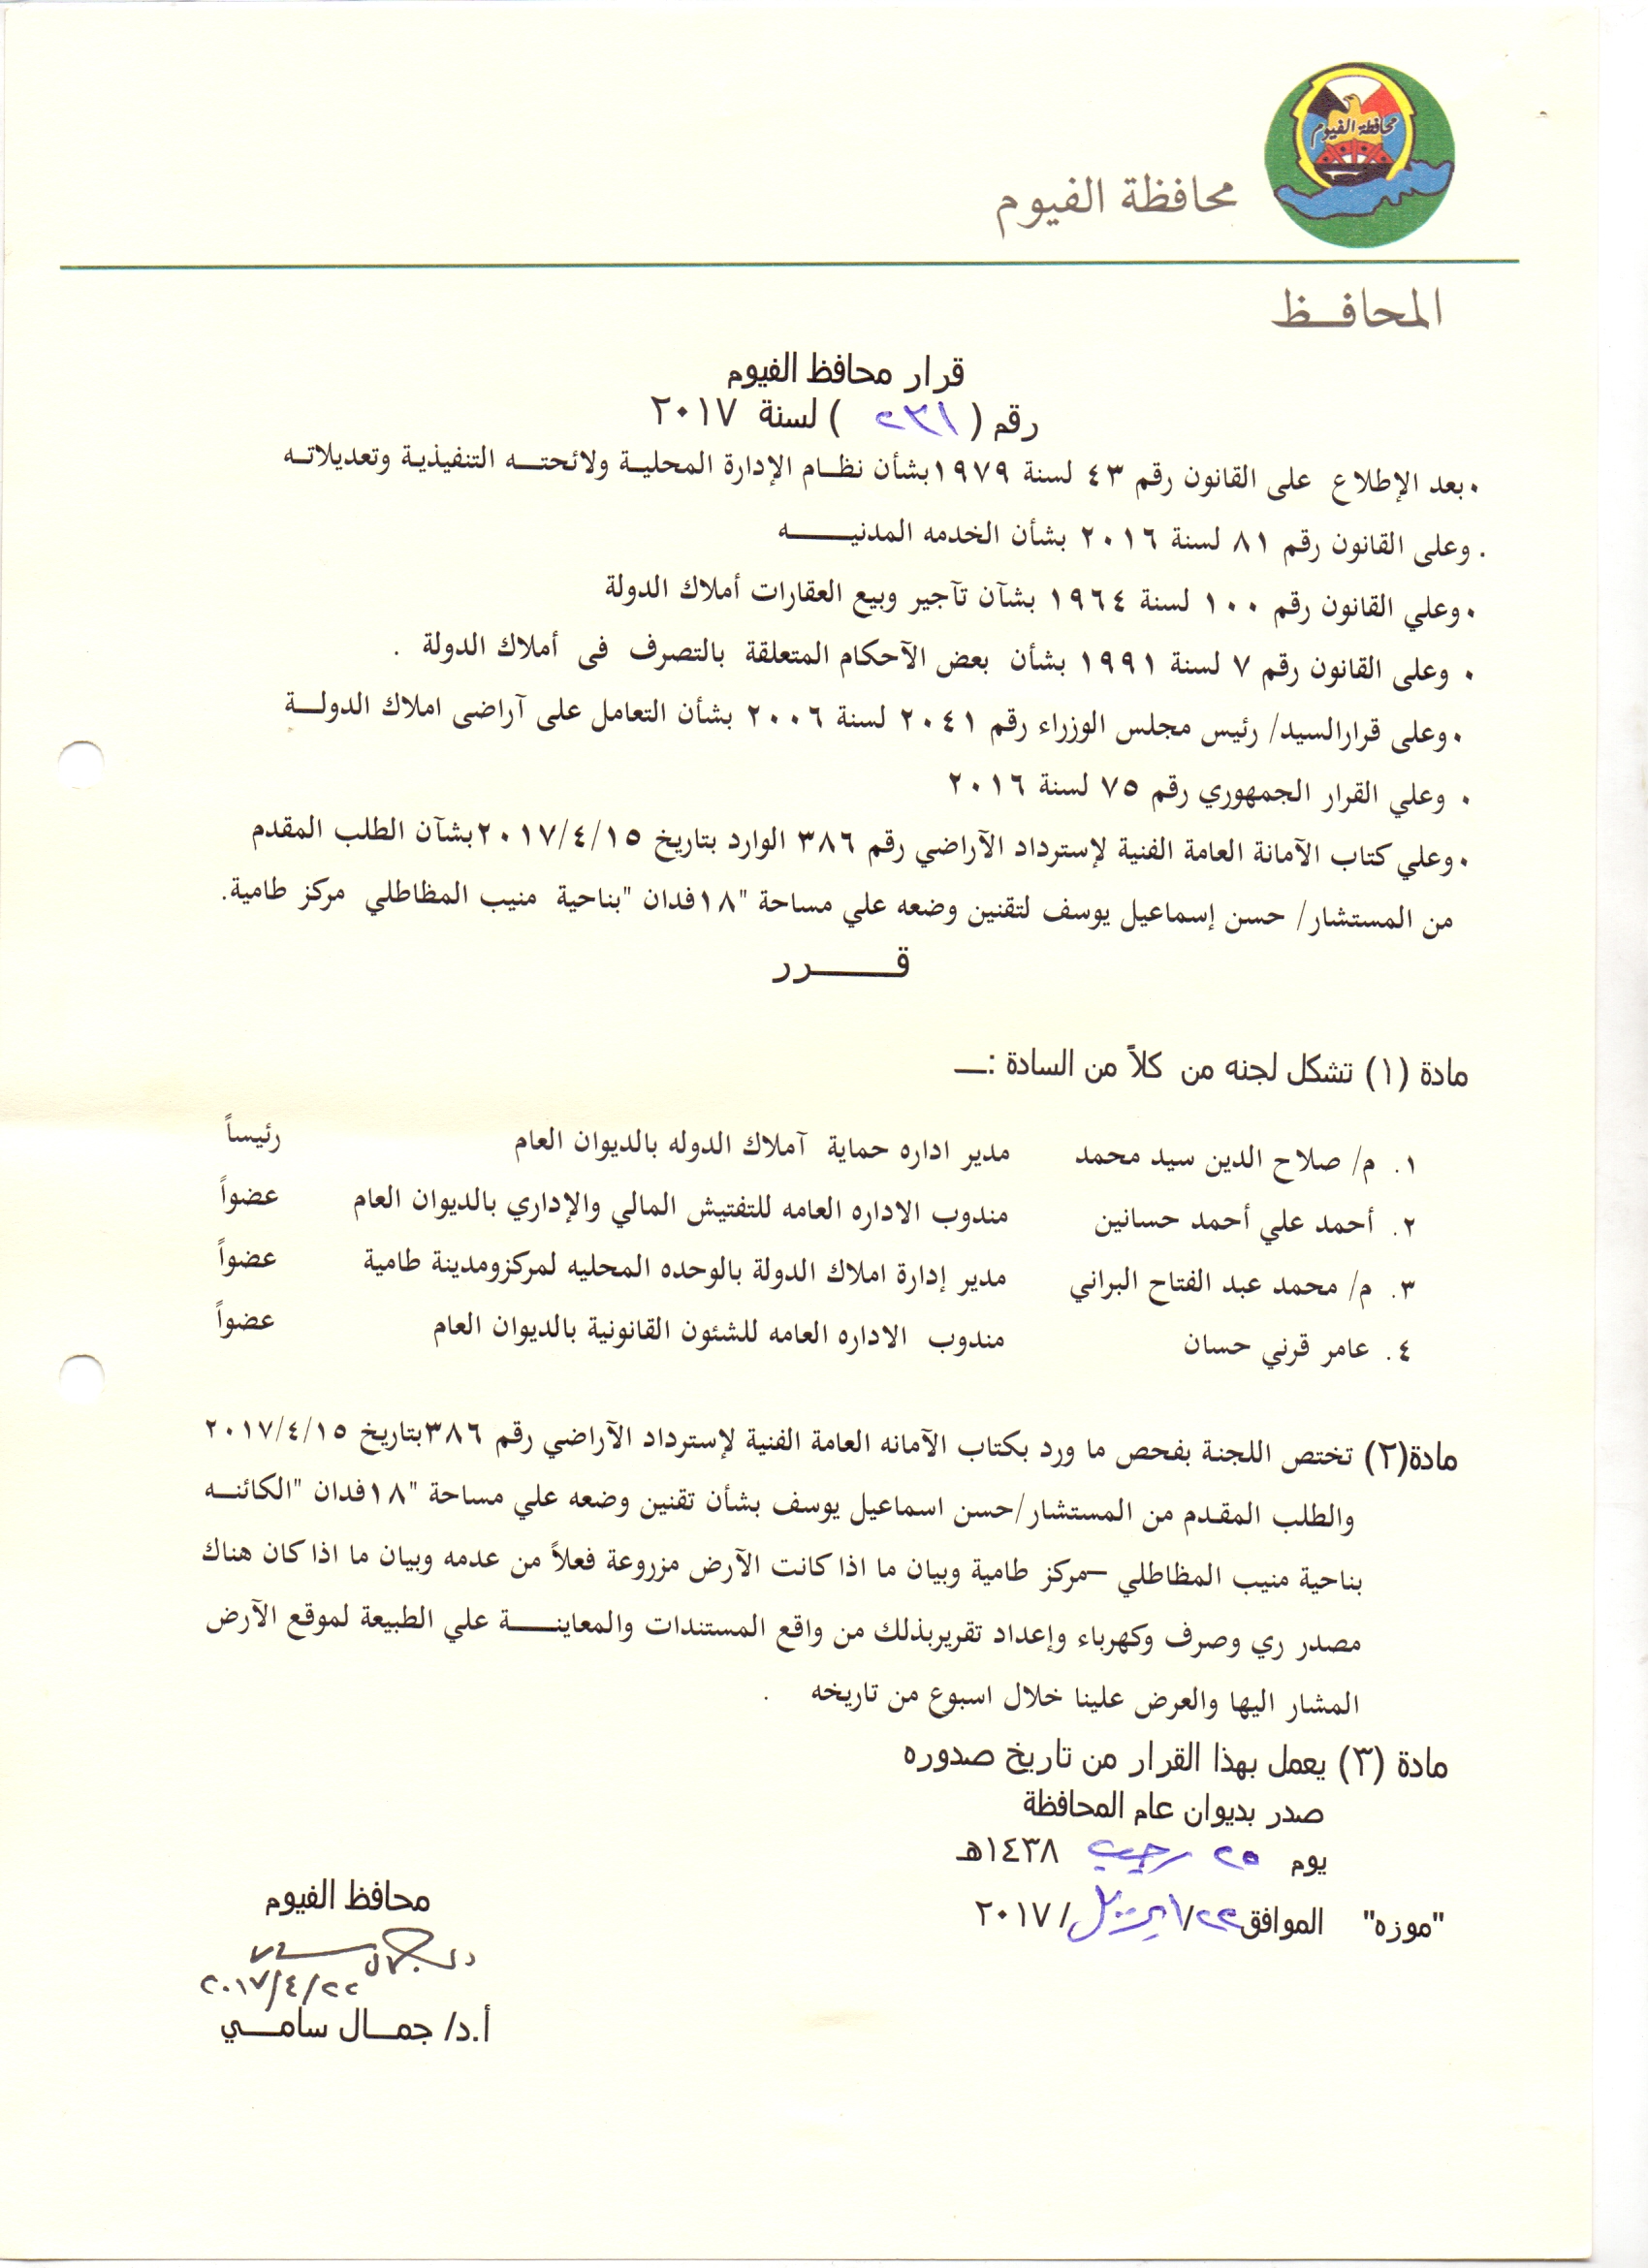 محافظة الفيوم
محافظة الفيوم
المحافـــظ
قرار محافظ الفيوم
رقم ( ٢٣١ ) لسنة ٢٠١٧
٠ بعد الإطلاع على القانون رقم ٤٣ لسنة ١٩٧٩ بشأن نظــام الإدارة المحليــة ولائحتــه التنفيذيـة وتعديلاتـه
. وعلى القانون رقم ٨١ لسنة ٢٠١٦ بشأن الخدمه المدنيـــــــه
٠ وعلي القانون رقم ١٠٠ لسنة ١٩٦٤ بشآن تآجير وبيع العقارات أملاك الدولة
٠ وعلى القانون رقم ٧ لسنة ١٩٩١ بشأن بعض الآحكام المتعلقة بالتصرف فى أملاك الدولة .
٠ وعلى قرارالسيد/ رئيس مجلس الوزراء رقم ٢٠٤١ لسنة ٢٠٠٦ بشأن التعامل على آراضى املاك الدولـــة
٠ وعلي القرار الجمهوري رقم ٧٥ لسنة ٢٠١٦
٠ وعلي كتاب الآمانة العامة الفنية لإسترداد الآراضي رقم ٣٨٦ الوارد بتاريخ ٢٠١٧/٤/١٥ بشآن الطلب المقدم
من المستشار/ حسن إسماعيل يوسف لتقنين وضعه علي مساحة "١٨فدان "بناحية منيب المظاطلي مركز طامية.
قـــــــرر
مادة (١) تشكل لجنه من كلاً من السادة :ــ
١. م/ صلاح الدين سيد محمد مدير اداره حماية آملاك الدوله بالديوان العام رئيساً
٢. أحمد علي أحمد حسانين مندوب الاداره العامه للتفتيش المالي والإداري بالديوان العام عضواً
٣. م/ محمد عبد الفتاح البراني مدير إدارة املاك الدولة بالوحده المحليه لمركزومدينة طامية عضواً
٤. عامر قرني حسان مندوب الاداره العامه للشئون القانونية بالديوان العام عضواً
مادة(٢) تختص اللجنة بفحص ما ورد بكتاب الآمانه العامة الفنية لإسترداد الآراضي رقم ٣٨٦بتاريخ ٢٠١٧/٤/١٥
والطلب المقدم من المستشار/حسن اسماعيل يوسف بشأن تقنين وضعه علي مساحة "١٨فدان "الكائنــه
بناحية منيب المظاطلي –مركز طامية وبيان ما اذا كانت الآرض مزروعة فعلاً من عدمه وبيان ما اذا كان هناك
مصدر ري وصرف وكهرباء وإعداد تقريربذلك من واقع المستندات والمعاينـــــة علي الطبيعة لموقع الآرض
المشار اليها والعرض علينا خلال اسبوع من تاريخه .
مادة (٣) يعمل بهذا القرار من تاريخ صدوره
صدر بديوان عام المحافظة
يوم ٢٥ رجب ١٤٣٨هـ
"موزه" الموافق ٢٢/ابريل/٢٠١٧
محافظ الفيوم
٢٠١٧/٤/٢٢
أ.د/ جمـــال سامـــي